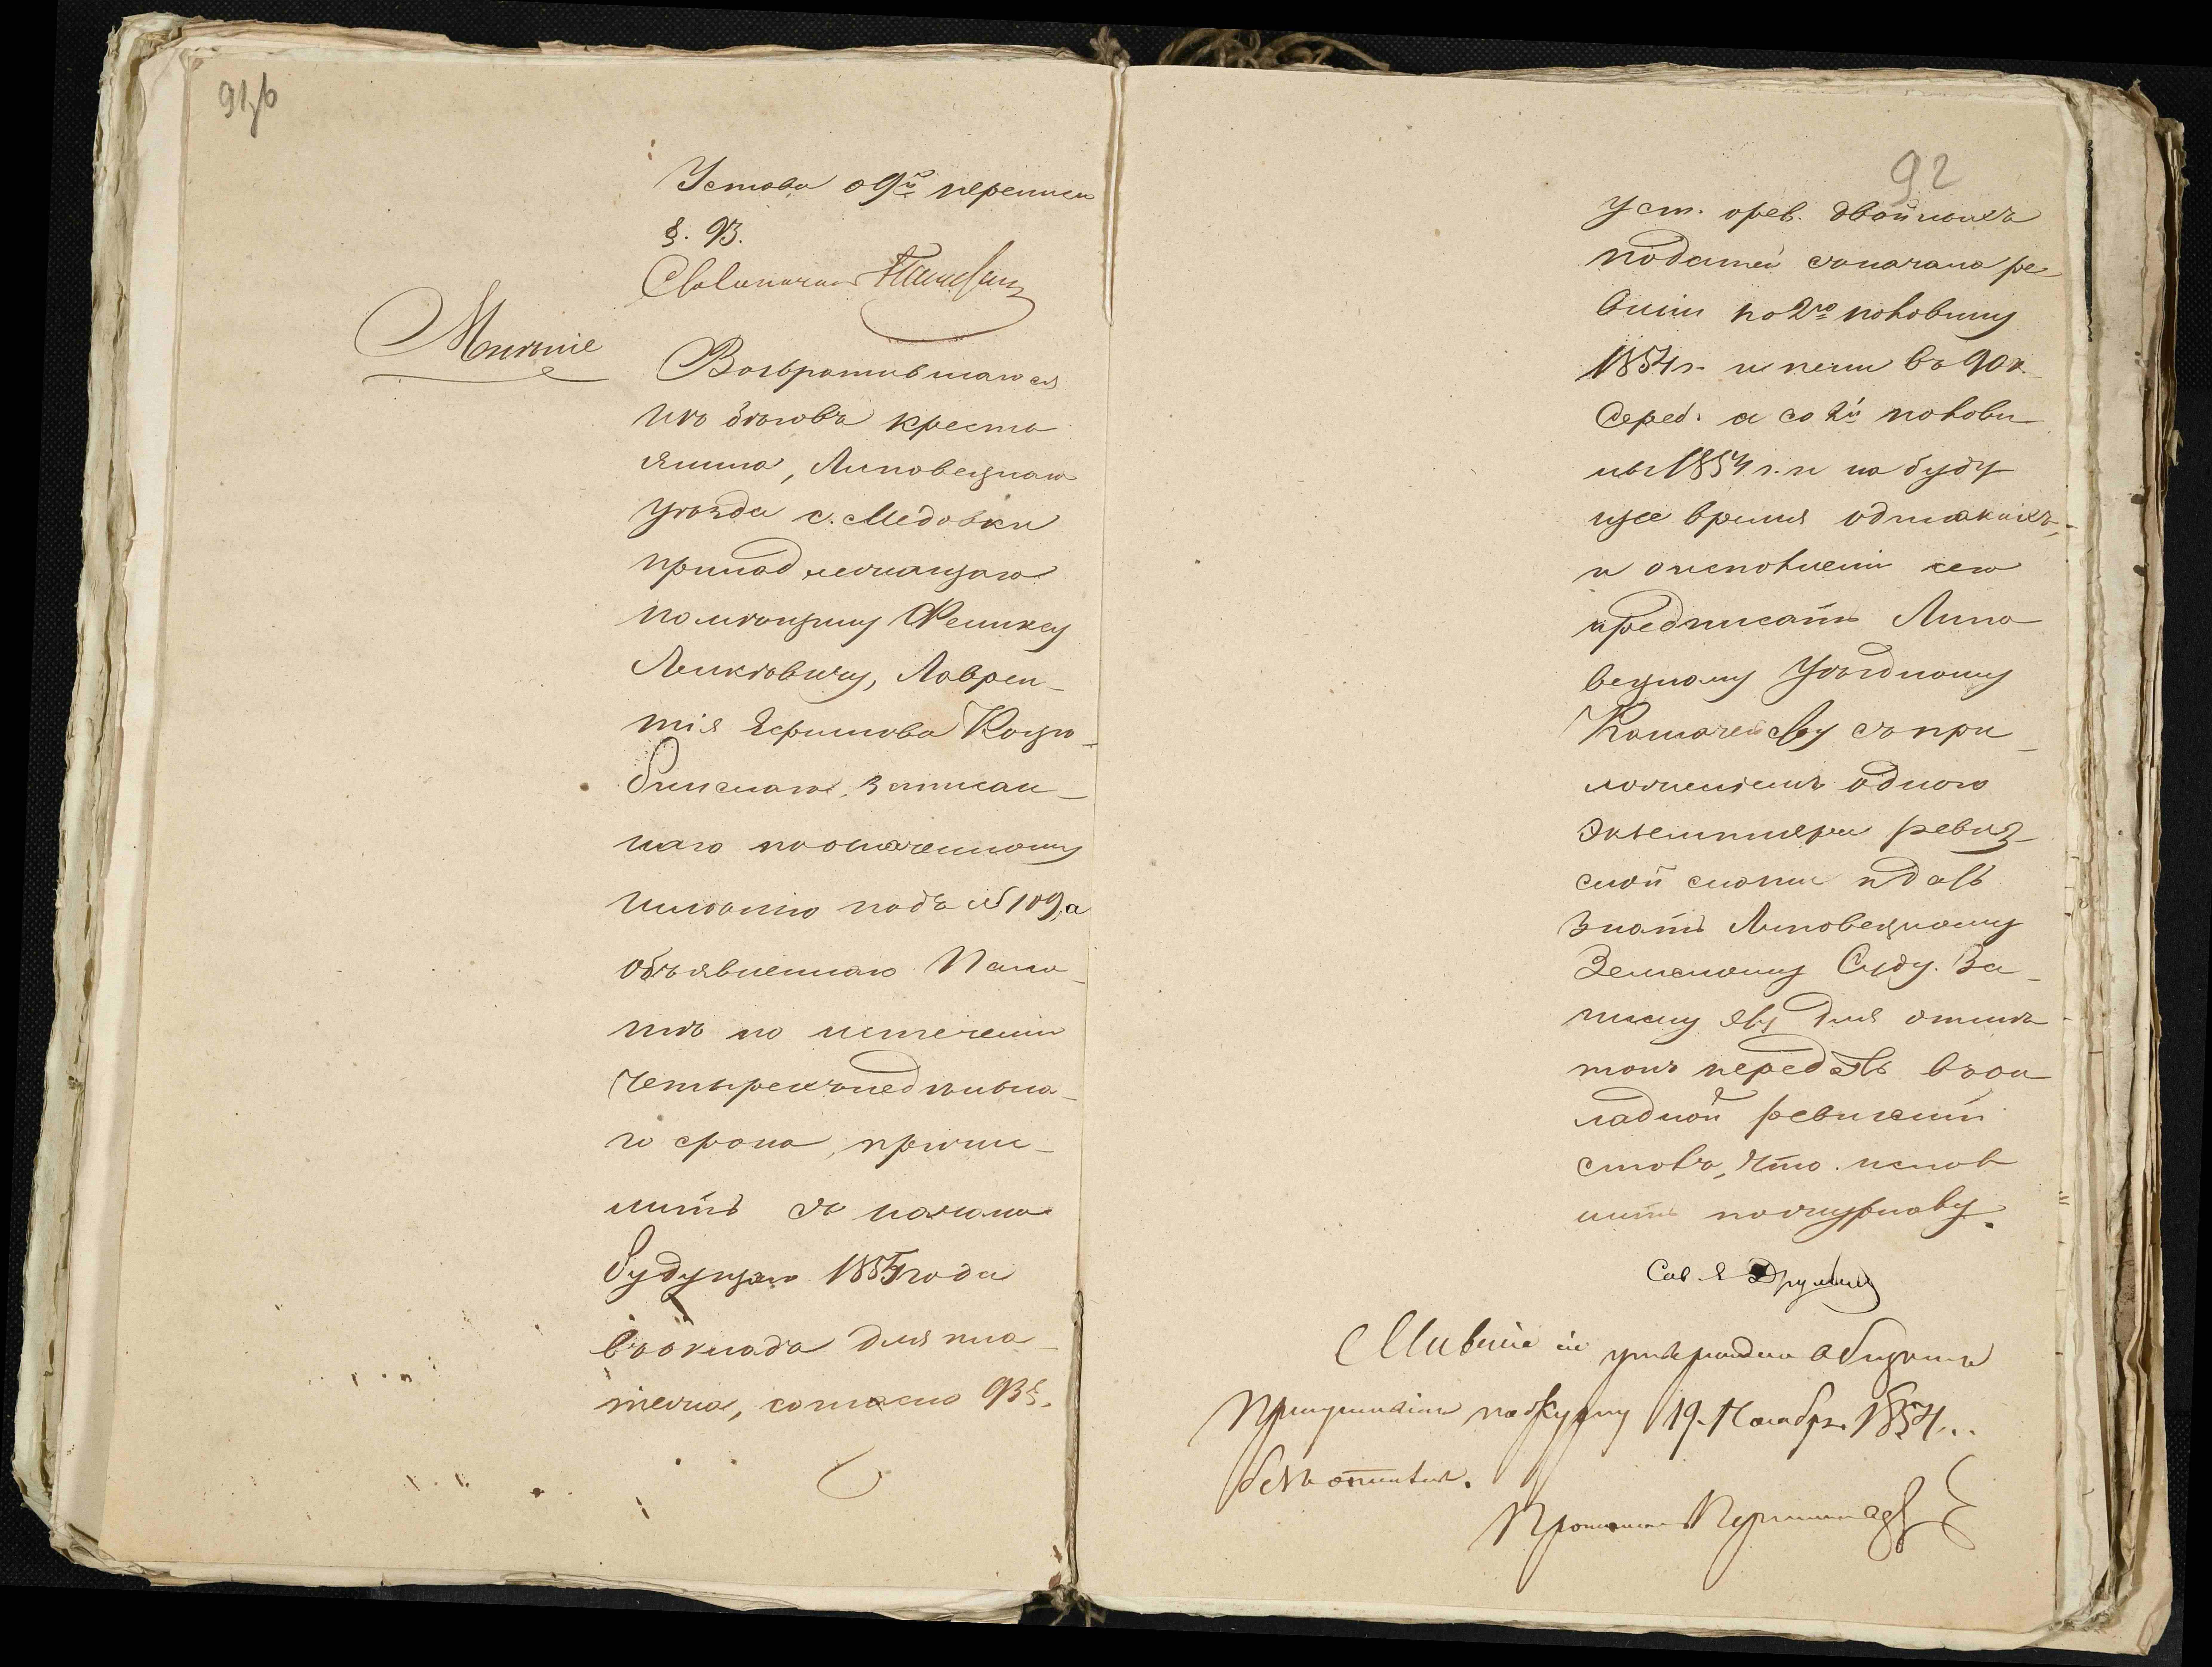 91 об
Устава о 9й переписи
§. 93.
Мнѣніе
Возвратившагося
изъ бѣговъ крестъ
янина, Липовецкаго
уѣзда с. Медовки
принадлежащаго
помѣщику Феликсу
Лаврен-
тія Ефимова Коцю-
бинскаго, записан-
наго по означенному
имѣнію подъ № 109, а
объявленнаго Пала-
тѣ по истеченіи
четырехънедѣльна-
го срока, причи-
лить съ начала
будущаго 1855 года
въ окладъ для пла
тежа, согласно 93 §.
92
Уст. о рев. двойныхъ
податей съ начала ре
визіи по 2ю половину
1854 г. и пени въ 90 к.
сереб. а со 2й полови
ны 1854 г. и на буду
щее время одинакихъ,
и о исполненіи сего
предписать Липо
вецкому Уѣздному
Казначейству съ при
ложеніемъ одного
экземпляра ревиз-
ской сказки и дать
знать Липовецкому
Земскому Суду. За-
писку эту для отмѣ
токъ передать въ ок
ладной ревизскій
столъ, что исполн
ить по журналу.
Мнѣніе сіе утверждено общимъ
Присутствіемъ по журналу 19 Ноября 1854